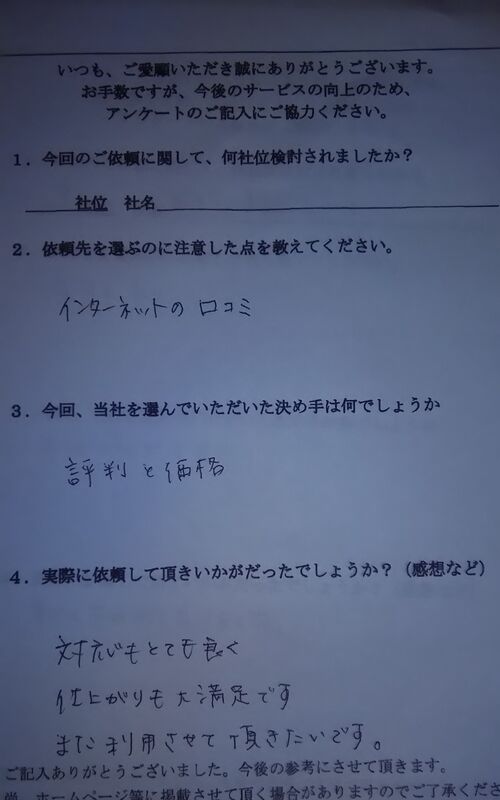 いつも、ご愛願いただき誠にありがとうございます。
お手数ですが、今後のサービスの向上のため、
アンケートのご記入にご協力ください。
1．今回のご依頼に関して、何社位検討されましたか？
社位 社名
2．依頼先を選ぶのに注意した点を教えてください。
インターネットの 口コミ
3．今回、当社を選んでいただいた決め手は何でしょうか
評判と価格
4．実際に依頼して頂きいかがだったでしょうか？（感想など）
対応もとても良く
仕上がりも大満足です
また利用させて頂きたいです。
ご記入ありがとうございました。今後の参考にさせて頂きます。
尚、ホームページ等に掲載させて頂く場合がありますのでご了承くださ